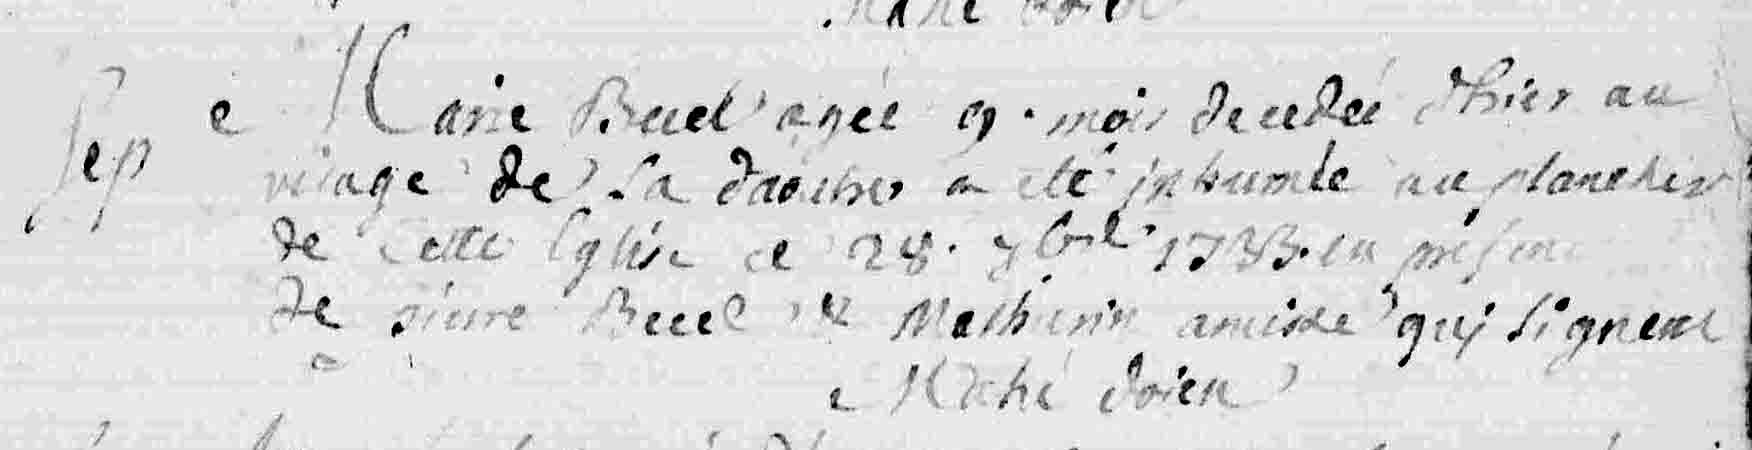 Sep
Marie Buel agée 9. mois decedée d'hier au
vilage de La a eté inhumée au plancher
de cette Eglise ce 28. 7bre 1733. en presence
de pierre Buel & Mathurin qui signent
Mahé doien